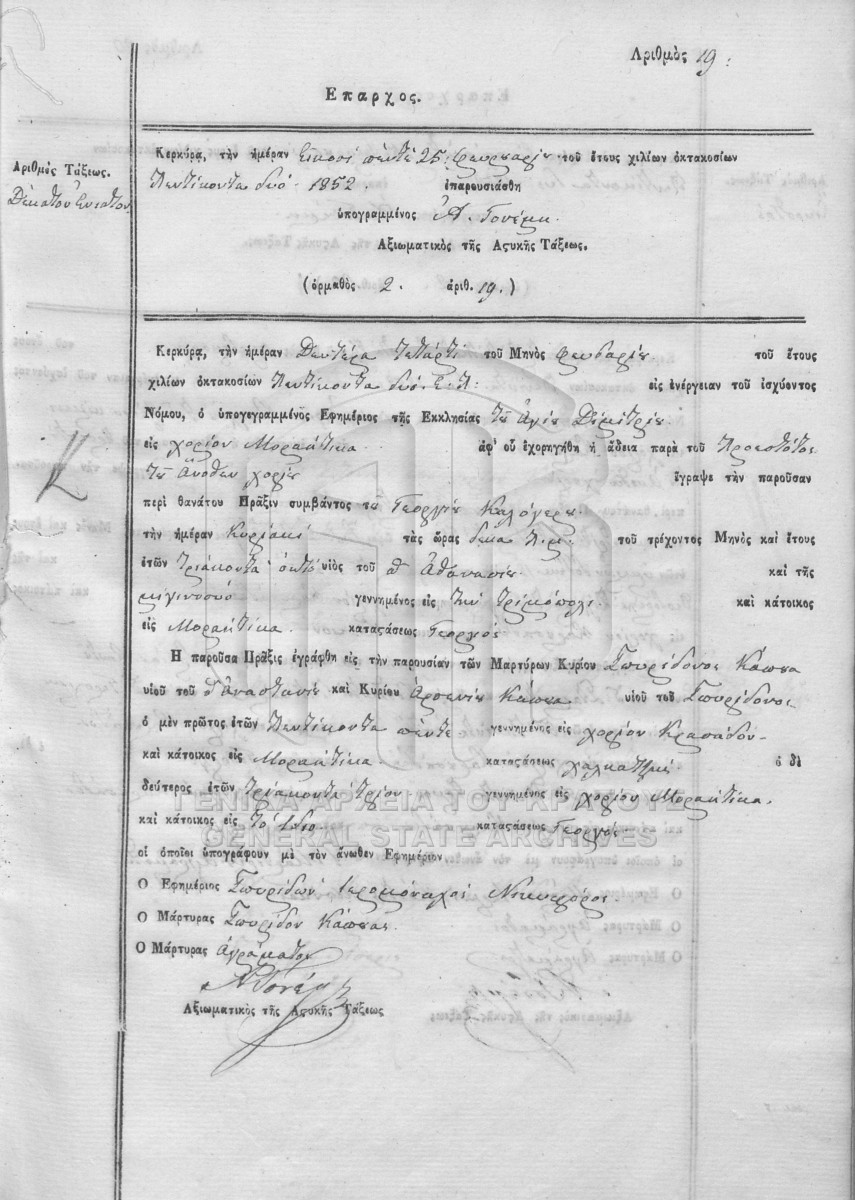 Αριθμὸς 19:
Επαρχος.
Αριθμὸς Τάξεως.
Δέκατον Ένατον
Κερκύρᾳ, τὴν ἡμέραν Είκοσι πέντε 25 Φευρουαρίου τοῦ ἔτους χιλίων ὀκτακοσίων
Πεντίκοντα δυό - 1852. ἐπαρουσιάσθη
ὑπογραμμένος Ἀ. Γονέμη.
Αξιωματικὸς τῆς Αςυκῆς Τάξεως.
(ὁρμαθὸς 2. ἀριθ. 19.)
Κερκύρᾳ, τὴν ἡμέραν Δευτέρα τετάρτι τοῦ Μηνὸς Φευβαρίου τοῦ ἔτους
χιλίων ὀκτακοσίων Πεντίκοντα δυό. Ε. Π: εἰς ἐνέργειαν τοῦ ἰσχύοντος
Νόμου, ὁ ὑπογεγραμμένος Εφημέριος τῆς Εκκλησίας τοῦ Ἁγίου Διμιτρίου
εἰς χορίον Μοραήτικα ἀφ' οὗ ἐχορηγήθη ἡ ἄδεια παρὰ τοῦ Προεστότος
τοῦ Άνοθεν χορίου ἔγραψε τὴν παροῦσαν
περὶ θανάτου Πρᾶξιν συμβάντος τοῦ Γεοργίου Καλόγερου
τὴν ἡμέραν Κυριακί τὰς ὥρας δεκα π.μ. τοῦ τρέχοντος Μηνὸς καὶ ἔτους
ἐτῶν τριάκοντα οκτό υἱὸς τοῦ Ἀθανασίου. καὶ τῆς
γεννημένος εἰς καὶ κάτοικος
εἰς Μοραήτικα. καταςάσεως Γεοργός
Η παροῦσα Πρᾶξις ἐγράφθη εἰς τὴν παρουσίαν τῶν Μαρτύρων Κυρίου Σπυρίδονος Κάπσα
υἱοῦ τοῦ Αναστασίου καὶ Κυρίου Αρσενίου Κάπσα υἱοῦ τοῦ Σπυρίδονος
ὁ μὲν πρῶτος ἐτῶν Πεντίκοντα πέντε γεννημένος εἰς χορίον
καὶ κάτοικος εἰς Μοραήτικα. καταςάσεως ὁ δὲ
δεύτερος ἐτῶν τριάκοντα τριον γεννημένος εἰς χορίον Μοραήτικα.
καὶ κάτοικος εἰς το Ιδιο. καταςάσεως Γεοργός.
οἱ ὁποῖοι ὑπογράφουν μὲ τὸν ἄνωθεν Εφημέριον
Ο Εφημέριος Σπυρίδων ιερομόναχος
Ο Μάρτυρας Σπυρίδον Κάπσας.
Ο Μάρτυρας Αγράματος
Αξιωματικὸς τῆς Αςυκῆς Τάξεως
ΓΕΝΙΚΑ ΑΡΧΕΙΑ ΤΟΥ ΚΡΑΤΟΥΣ
GENERAL STATE ARCHIVES